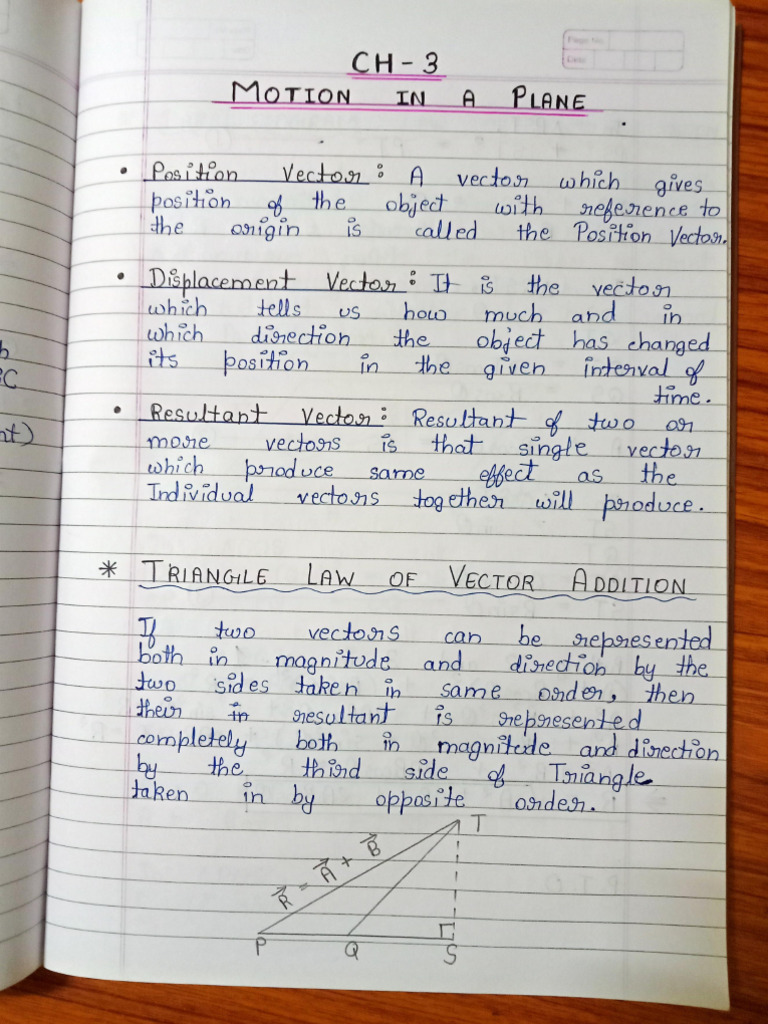 Page No.
Date
CH-3
MOTION IN A PLANE
• Position Vector: A vector which gives
position of the object with reference to
the origin is called the Position Vector.
• Displacement Vector: It is the vector
which tells us how much and in
which direction the object has changed
its position in the given interval of
time.
• Resultant Vector: Resultant of two or
more vectors is that single vector
which produce same effect as the
Individual vectors together will produce.
* TRIANGLE LAW OF VECTOR ADDITION
If two vectors can be represented
both in magnitude and direction by the
two sides taken in same order, then
their in resultant is represented
completely both in magnitude and direction
by the third side of Triangle
taken in by opposite order.
T
R⃗ = A⃗ + B⃗
P Q S
nt)